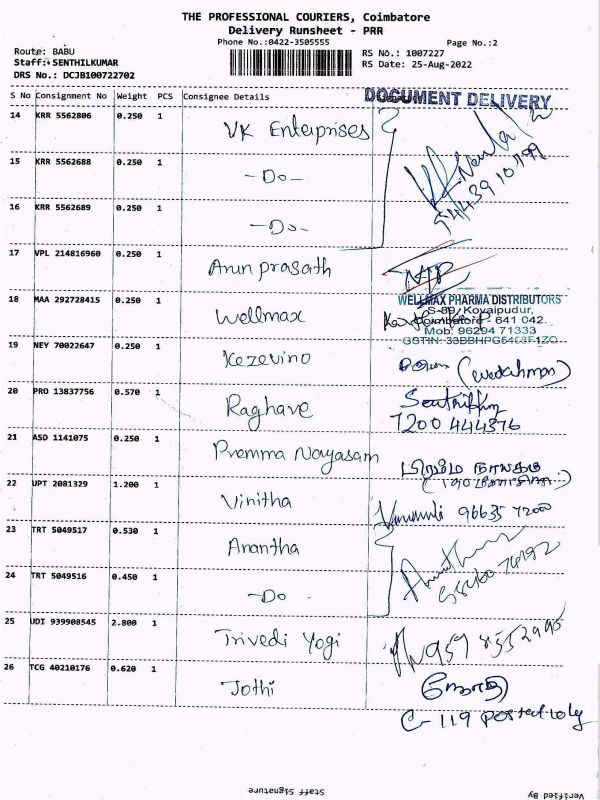 THE PROFESSIONAL COURIERS, Coimbatore
Delivery Runsheet - PRR
Phone No.:0422-3505555
Page No.:2
Route: BABU
Staff: SENTHILKUMAR
DRS No.: DCJB100722702
RS No.: 1007227
RS Date: 25-Aug-2022
S No Consignment No Weight PCS Consignee Details
DOCUMENT DELIVERY
14 KRR 5562806 0.250 1 VK Enterprises
15 KRR 5562688 0.250 1 -Do-
16 KRR 5562689 0.250 1 -Do-
17 VPL 214816960 0.250 1 Arun prasath
18 MAA 292728415 0.250 1 Wellmax
WELLMAX PHARMA DISTRIBUTORS
S-89, Kovaipudur,
Coimbatore - 641 042.
Mob: 96294 71333
19 NEY 70022647 0.250 1 Kezevino
20 PRO 13837756 0.570 1 Raghave
7200 444376
21 ASD 1141075 0.250 1 Premma Nayasam
22 UPT 2081329 1.200 1 Vinitha
96635 72000
23 TRT 5049517 0.530 1 Anantha
24 TRT 5049516 0.450 1 -Do-
25 UDI 939908545 2.800 1 Trivedi Yogi
26 TCG 40210176 0.620 1 Jothi
ஜோதி
C-119 Postal
Staff Signature
Verified By